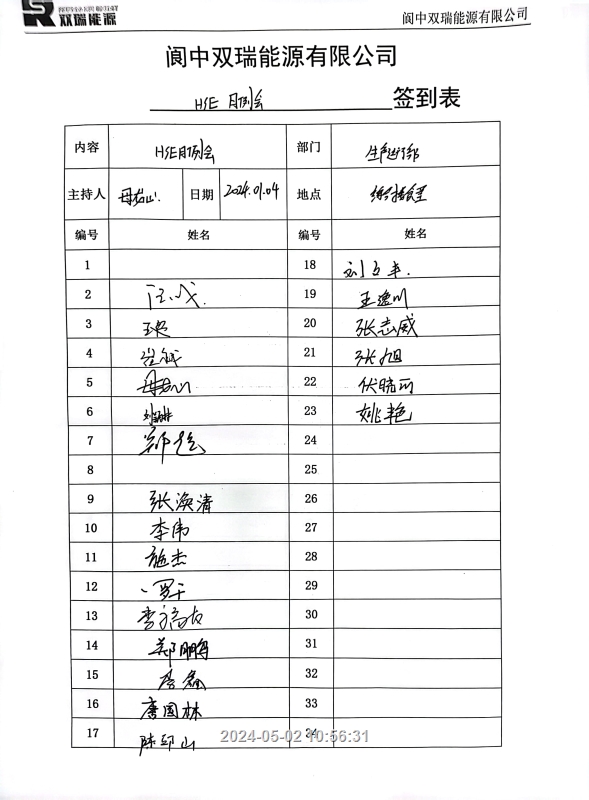 双瑞能源
阆中双瑞能源有限公司
阆中双瑞能源有限公司
HSE 月例会 签到表
内容 HSE月例会 部门 生产运行部
主持人 日期 2024.01.04 地点
编号 姓名 编号 姓名
1 18 刘立丰.
2 汪成. 19 王逸川
3 20 张志威
4 21 张旭
5 22 伏晓丽
6 23 姚艳
7 郑 24
8 25
9 张焕清 26
10 李伟 27
11 施杰 28
12 罗 29
13 李 30
14 郑鹏 31
15 李鑫 32
16 唐国林 33
17 陈邛山 34
2024-05-02 10:56:31